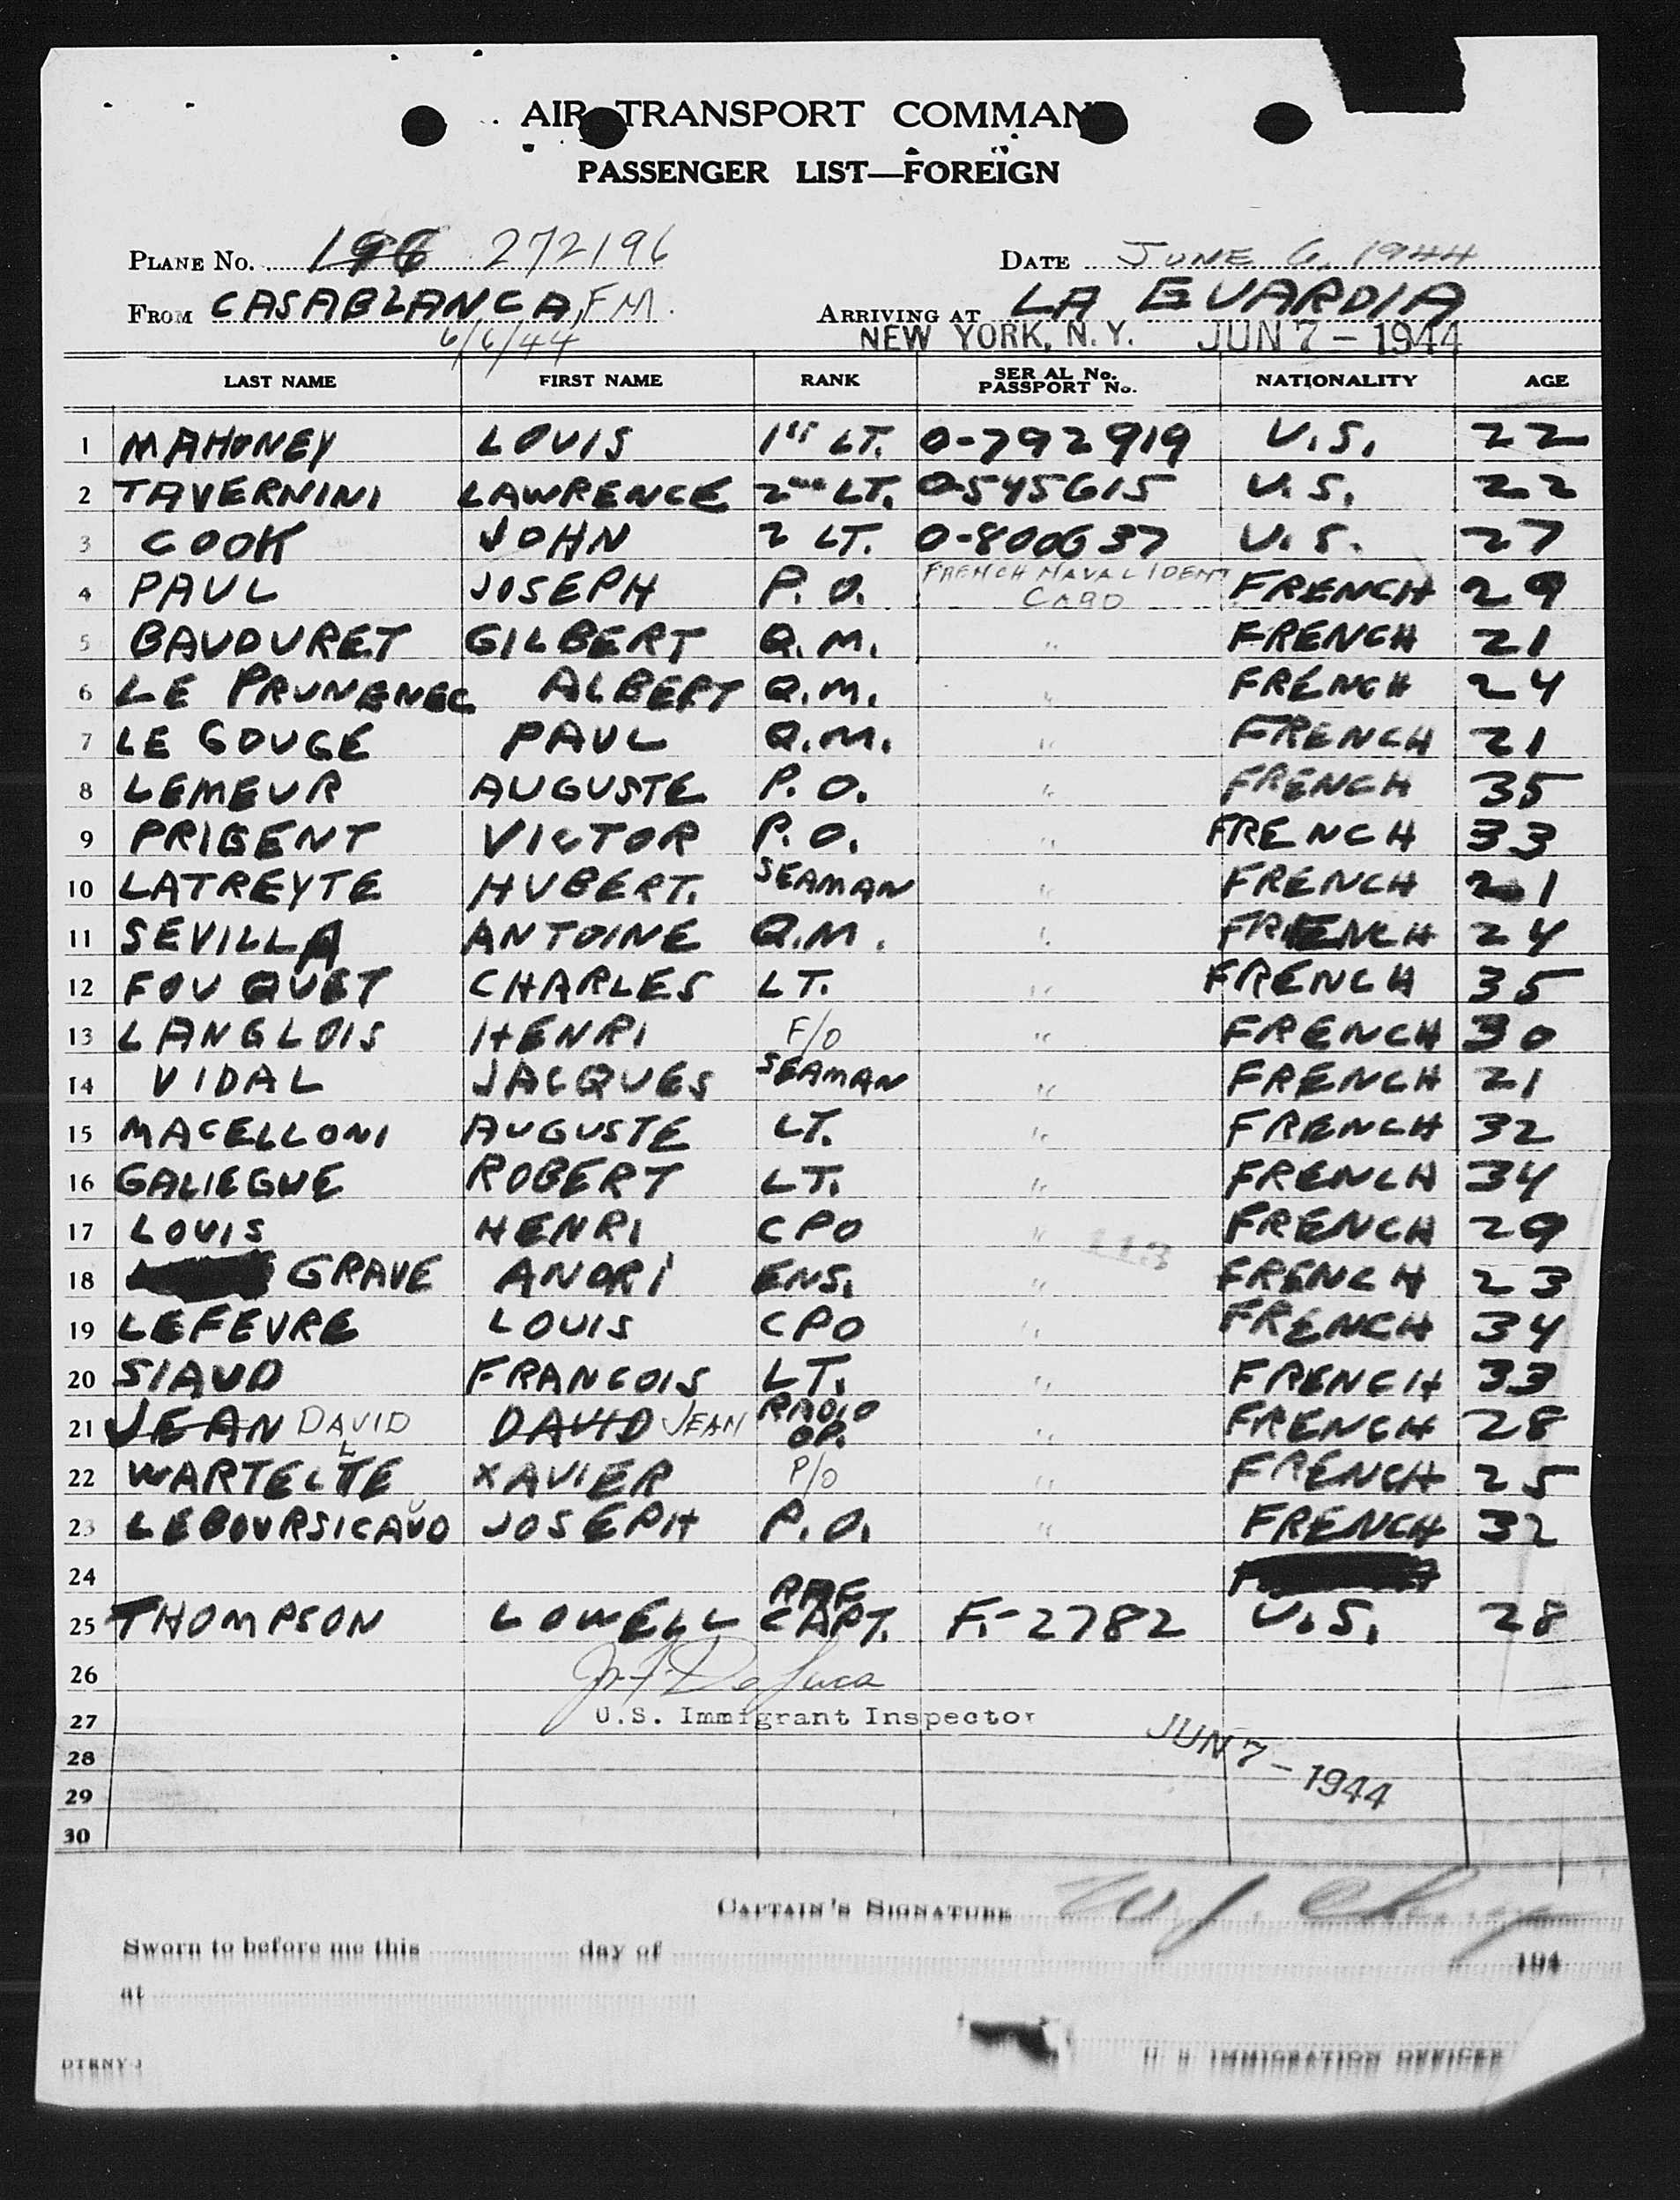 AIR TRANSPORT COMMAND
PASSENGER LIST—FOREIGN
PLANE No. 196 272196 DATE JUNE 6, 1944
FROM CASABLANCA, FM. ARRIVING AT LA GUARDIA
6/6/44 NEW YORK, N.Y. JUN 7 - 1944
LAST NAME FIRST NAME RANK SER AL No. PASSPORT No. NATIONALITY AGE
1 MAHONEY LOUIS 1ST LT. 0-792919 U.S. 22
2 TAVERNINI LAWRENCE 2ND LT. 0-545615 U.S. 22
3 COOK JOHN 2 LT. 0-800637 U.S. 27
4 PAUL JOSEPH P.O. FRENCH NAVAL IDENT CARD FRENCH 29
5 BAUDURET GILBERT Q.M. " FRENCH 21
6 LE PRUNENEC ALBERT Q.M. " FRENCH 24
7 LE GOUGE PAUL Q.M. " FRENCH 21
8 LEMEUR AUGUSTE P.O. " FRENCH 35
9 PRIGENT VICTOR P.O. " FRENCH 33
10 LATREYTE HUBERT. SEAMAN " FRENCH 21
11 SEVILLA ANTOINE Q.M. " FRENCH 24
12 FOUQUET CHARLES LT. " FRENCH 35
13 LANGLOIS HENRI F/O " FRENCH 30
14 VIDAL JACQUES SEAMAN " FRENCH 21
15 MACELLONI AUGUSTE LT. " FRENCH 32
16 GALIEGUE ROBERT LT. " FRENCH 34
17 LOUIS HENRI CPO " 113 FRENCH 29
18 GRAVE ANDRI ENS. " FRENCH 23
19 LEFEVRE LOUIS CPO " FRENCH 34
20 SIAUD FRANCOIS LT. " FRENCH 33
21 JEAN DAVID DAVID JEAN RADIO OP. " FRENCH 28
22 WARTELLE XAVIER P/O " FRENCH 25
23 LEBOURSICAUD JOSEPH P.O. " FRENCH 32
24
25 THOMPSON LOWELL CAPT. F.-2782 U.S. 28
26
27 U.S. Immigrant Inspector
28 JUN 7 - 1944
29
30
CAPTAIN'S SIGNATURE
Sworn to before me this day of 194
at
DTRNY-J U S IMMIGRATION OFFICER